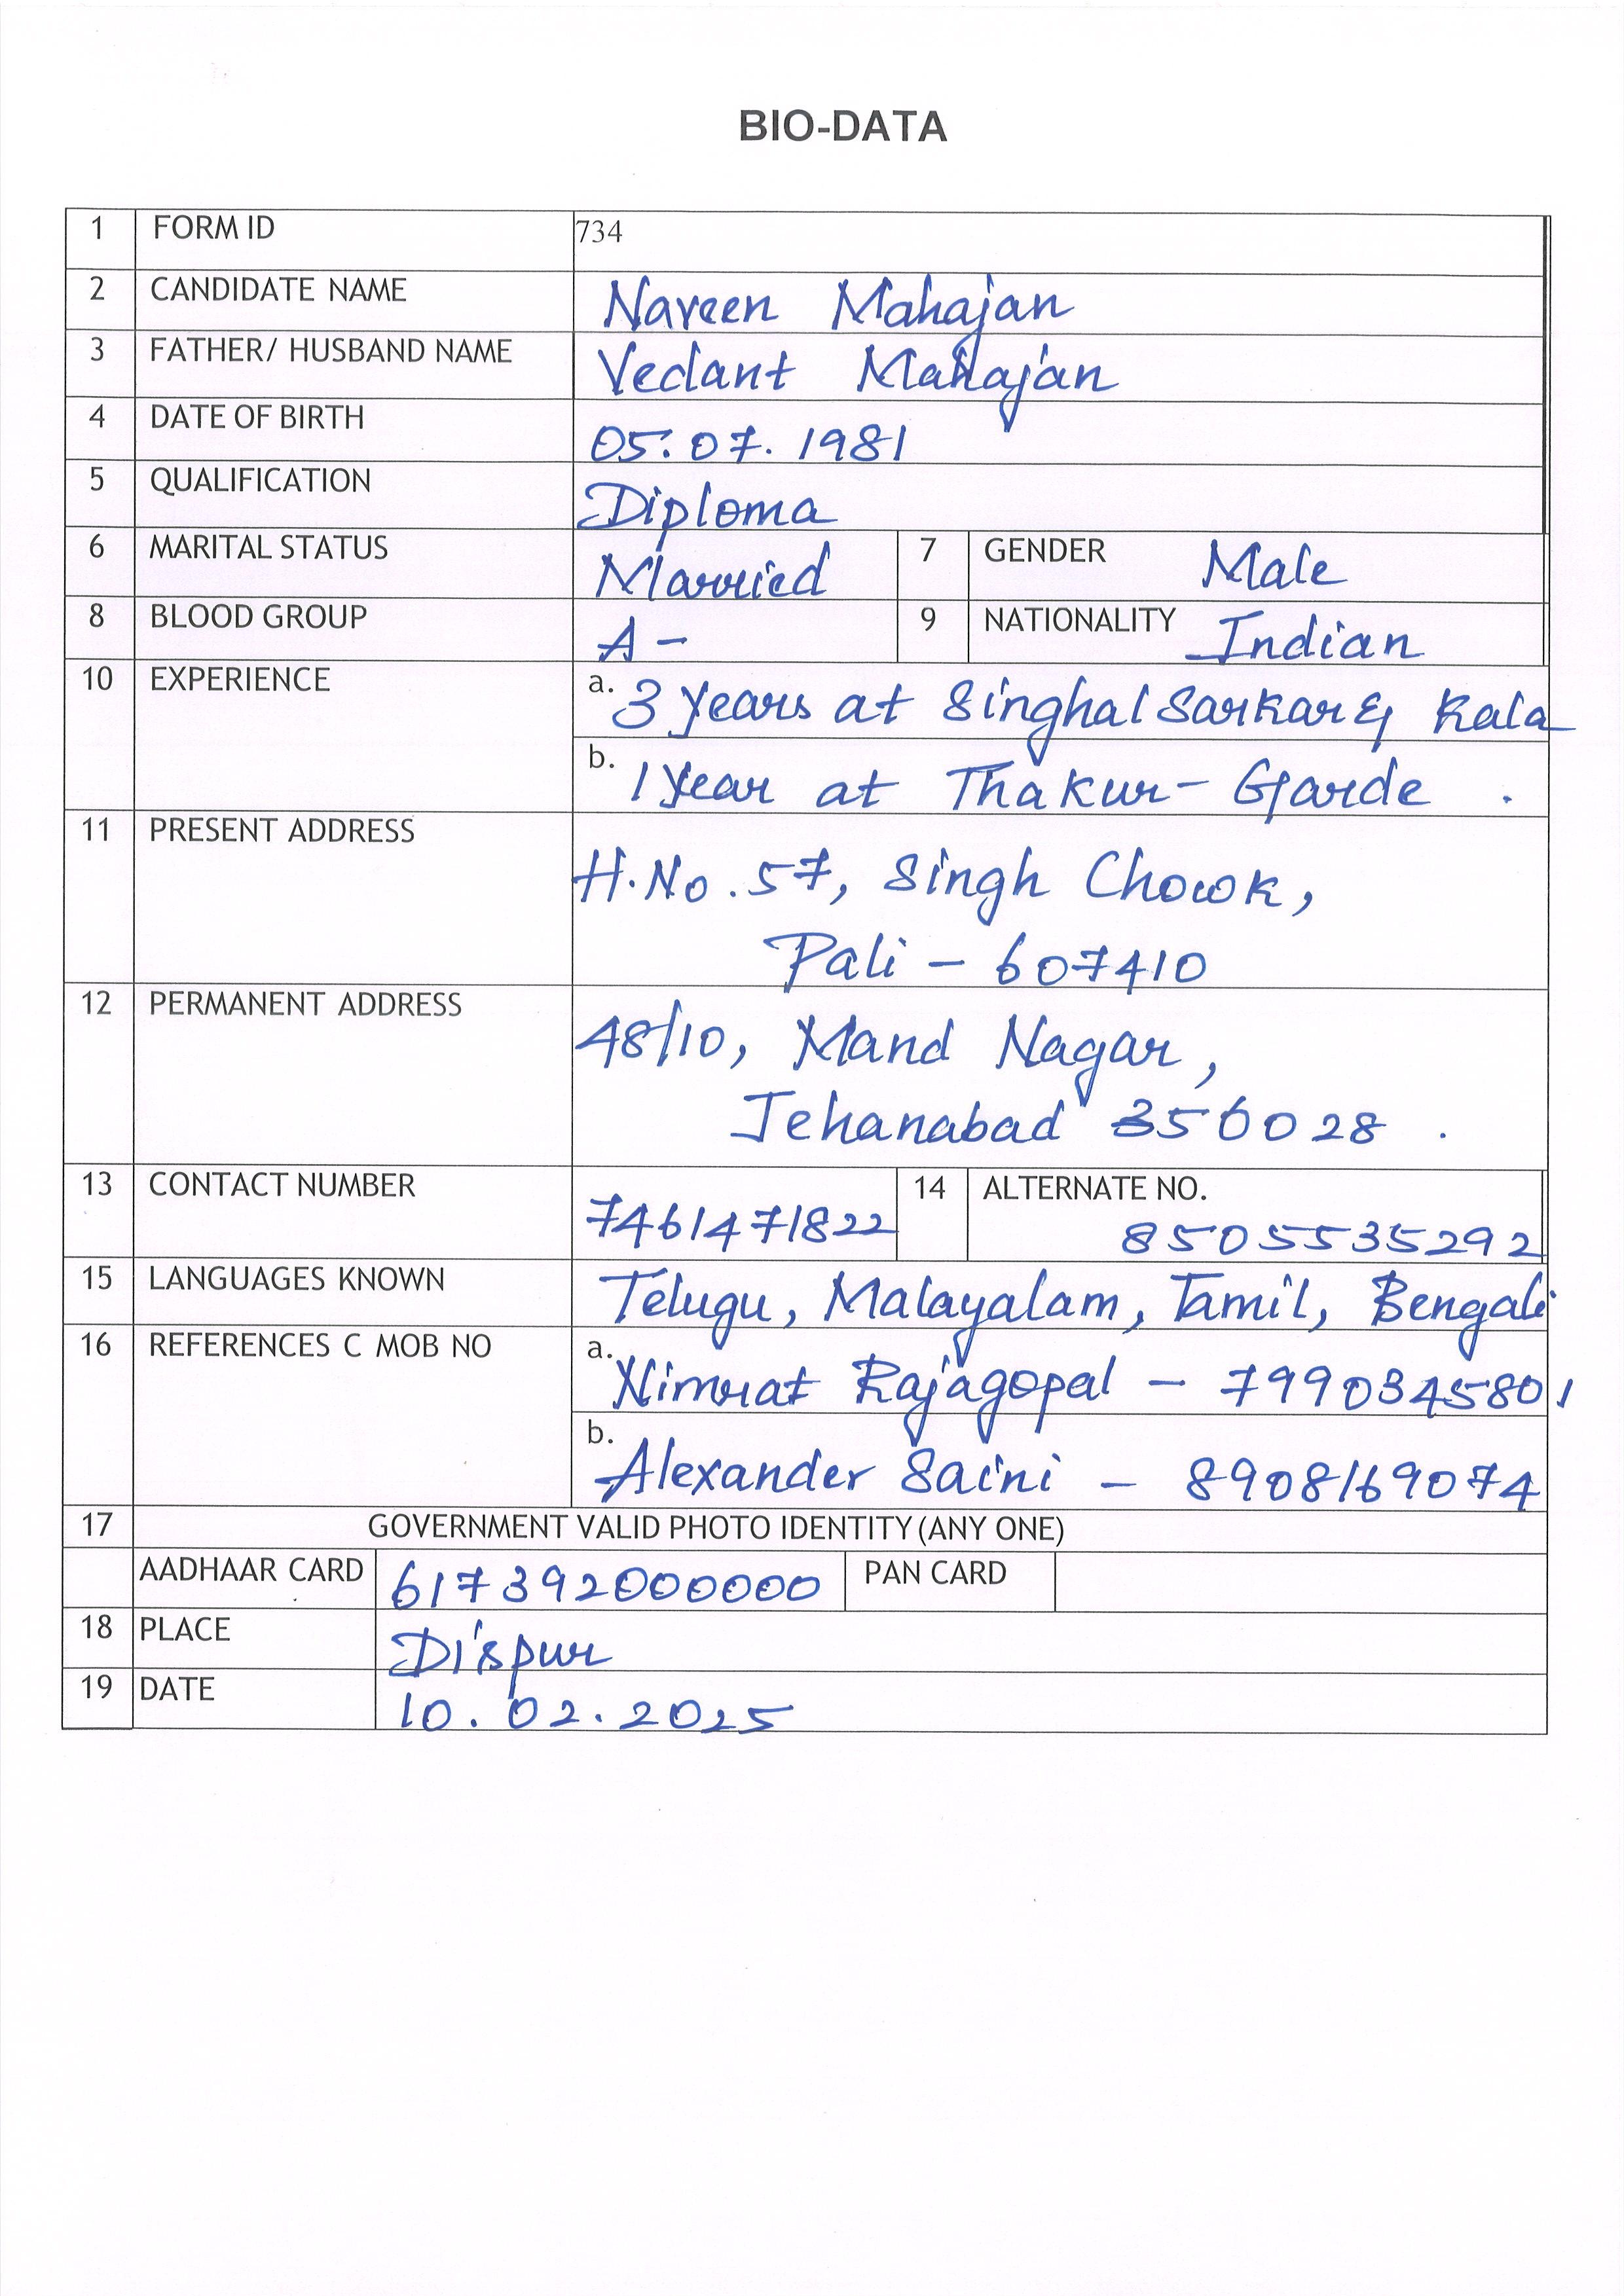 BIO-DATA
1 FORM ID 734
2 CANDIDATE NAME Naveen Mahajan
3 FATHER/ HUSBAND NAME Vedant Mahajan
4 DATE OF BIRTH 05.07.1981
5 QUALIFICATION Diploma
6 MARITAL STATUS Married 7 GENDER Male
8 BLOOD GROUP A- 9 NATIONALITY Indian
10 EXPERIENCE a. 3 years at Singhal Sarkar & Kala
b. 1 Year at Thakur-
11 PRESENT ADDRESS H.No. 57, Singh Chowk,
Pali - 607410
12 PERMANENT ADDRESS 48/10, Mand Nagar,
Jehanabad 356028.
13 CONTACT NUMBER 7461471822 14 ALTERNATE NO. 8505535292
15 LANGUAGES KNOWN Telugu, Malayalam, Tamil, Bengali
16 REFERENCES C MOB NO a. Nimrat Rajagopal - 7990345801
b. Alexander Saini - 8908169074
17 GOVERNMENT VALID PHOTO IDENTITY (ANY ONE)
AADHAAR CARD 617392000000 PAN CARD
18 PLACE Dispur
19 DATE 10.02.2025